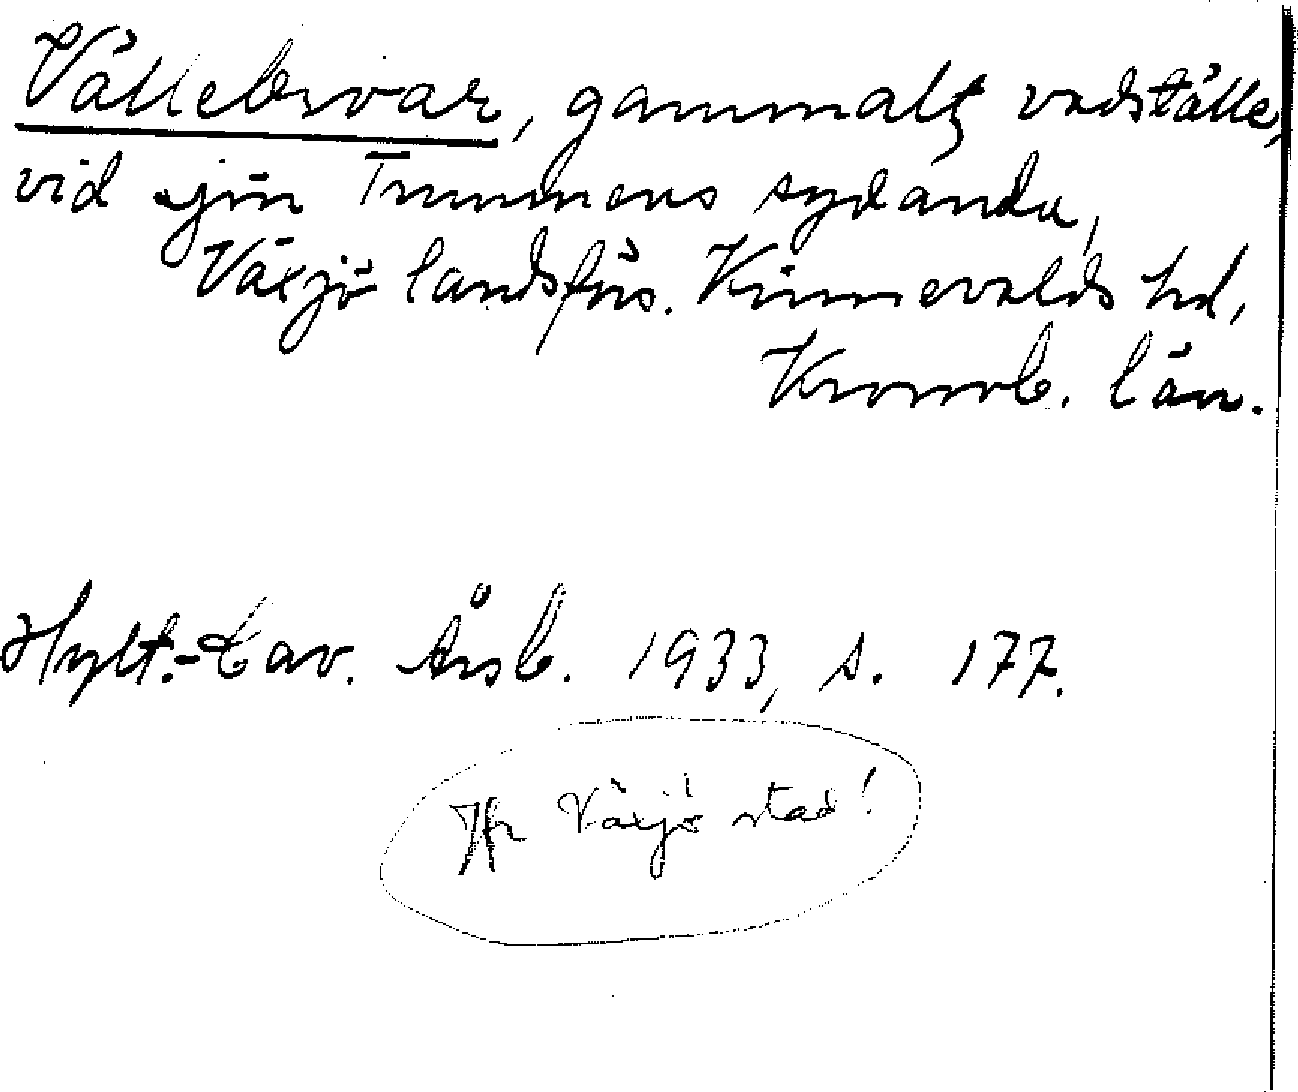 Vällebroar, gammalt vadställe,
vid sjön Trummens sydända,
Växjö landsförs. Kinnevalds hd,
Kronob. län.
Hylt.-Cav. Årsb. 1933, s. 177.
Jfr Växjö stad!